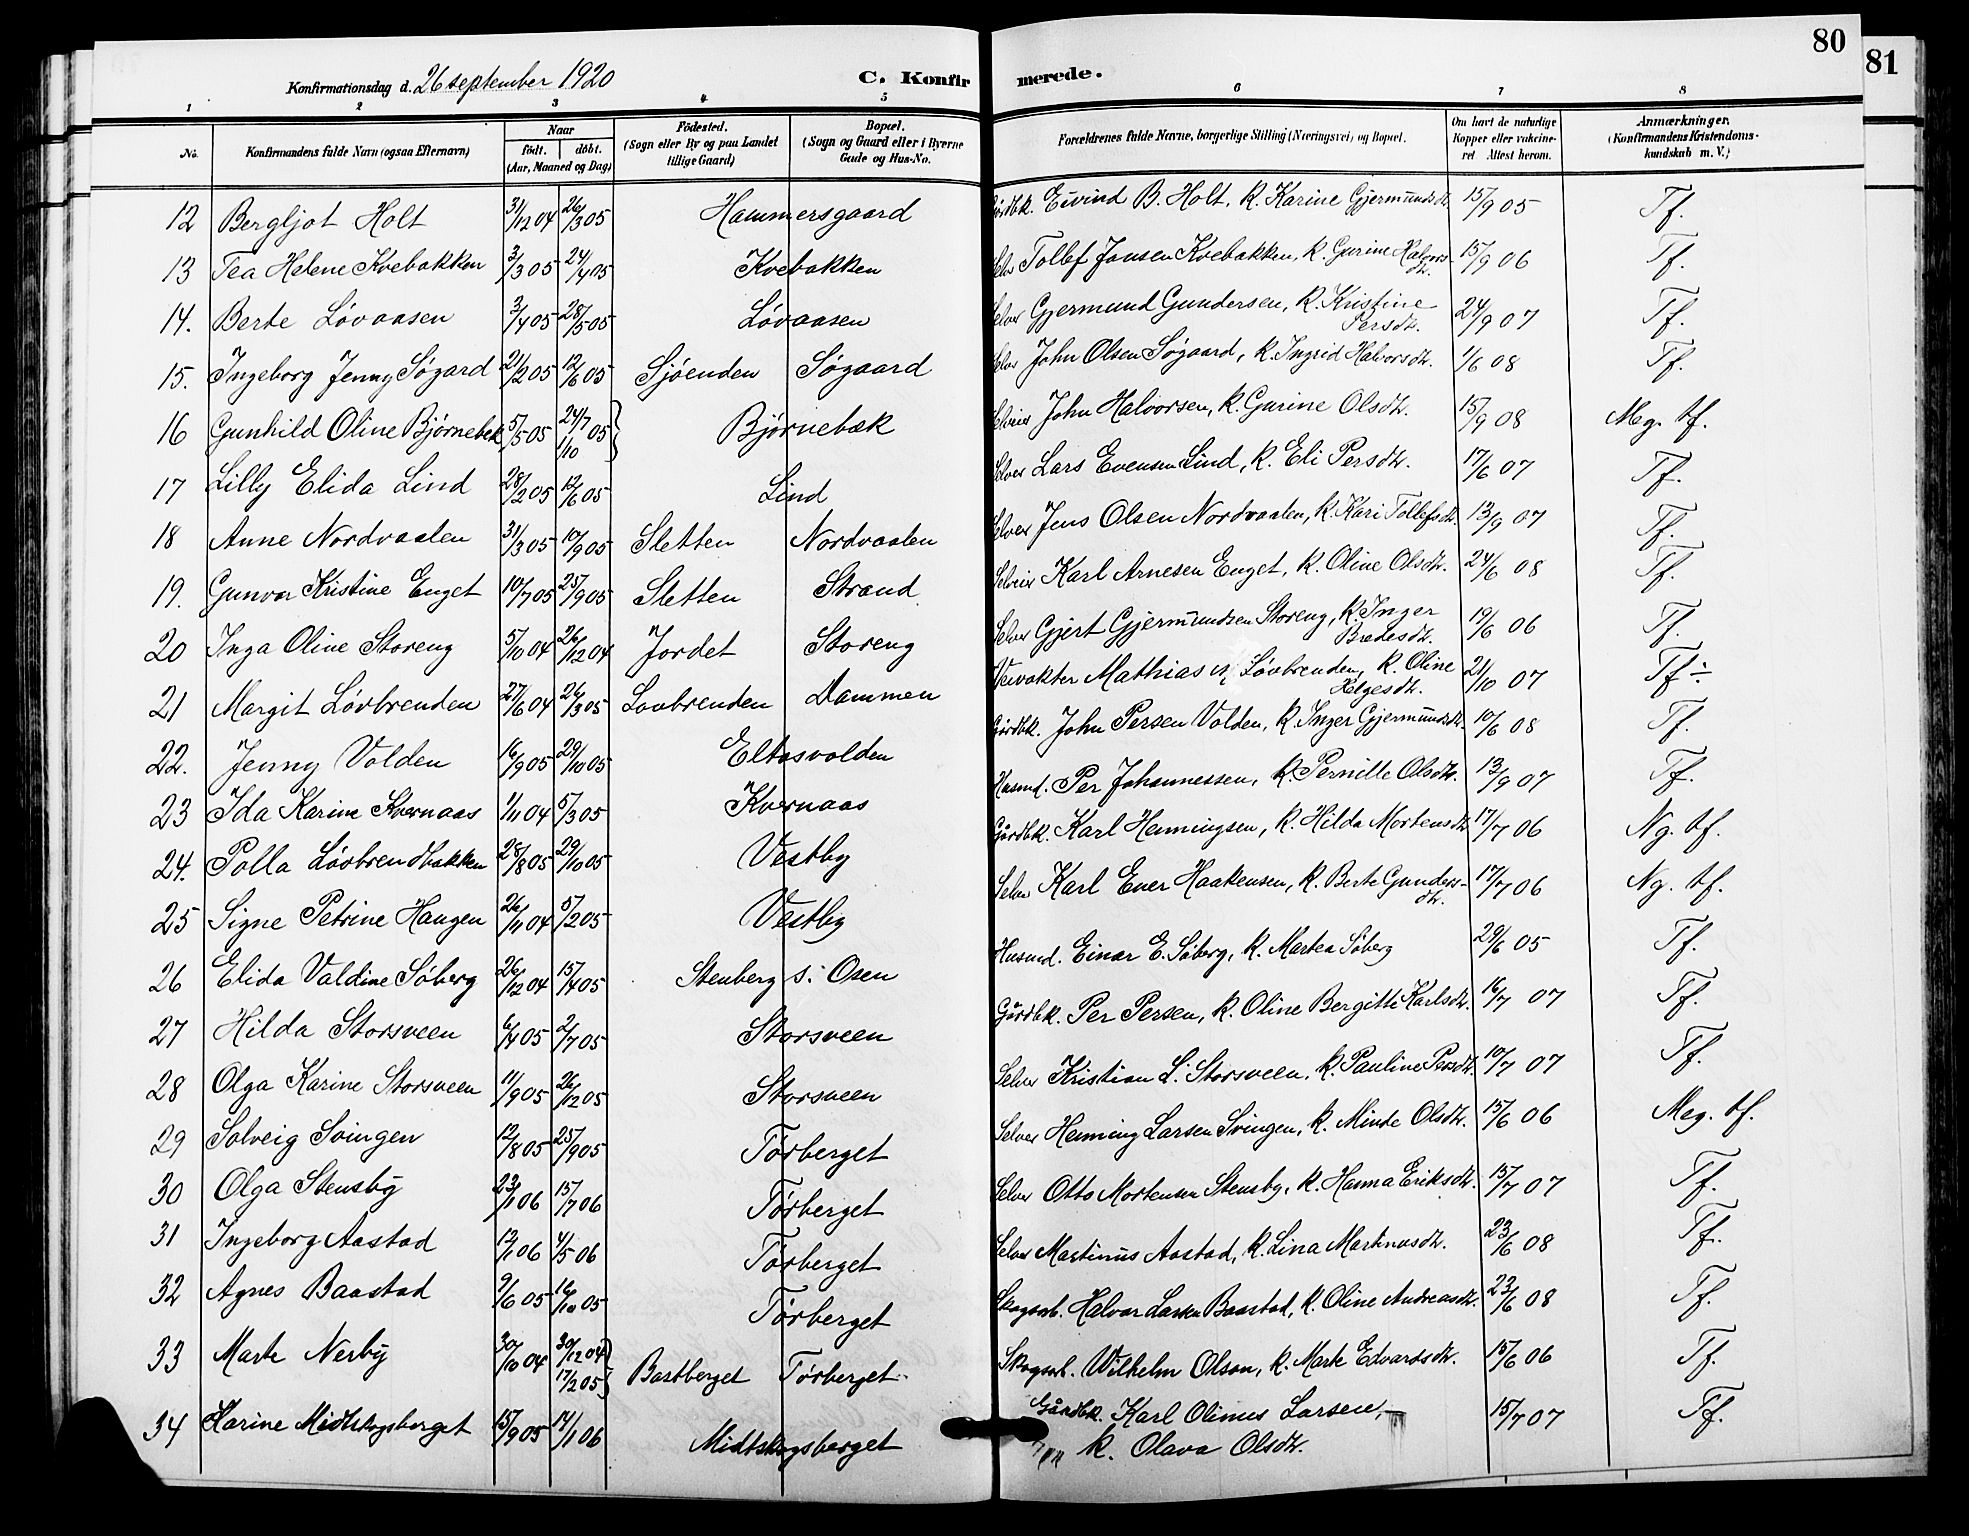 80
81
Konfirmationsdag d. 26 september 1920
C. Konfirmerede.
1 2 3 4 5 6 7 8
No. Konfirmandens fulde Navn (ogsaa Efternavn) Naar født. døbt. (Aar, Maaned og Dag) Fødested. (Sogn eller By og paa Landet tillige Gaard) Bopæl. (Sogn og Gaard eller i Byerne Gade og Hus-No. Forældrenes fulde Navne, borgerlige Stilling (Næringsvei) og Bopæl. Om havt de naturlige Kopper eller vakcineret Attest herom. Anmærkninger. (Konfirmandens Kristendomskundskab m. V.)
12 Bergljot Holt 31/12 04 26/3 05 Hammersgaard Gårdbk. Eivind B. Holt, k. Karine Gjermundsdtr. 15/9 05 Tf.
13 Tea Helene Kvebakken 3/3 05 24/4 05 Kvebakken Selv Tollef Jansen Kvebakken, k. Gurine Halvorsdtr. 15/9 06 Tf.
14. Berte Løvaasen 3/4 05 28/5 05 Løvaasen Selver Gjermund Gundersen, k. Kristine Persdtr. 24/9 07 Tf.
15. Ingeborg Jenny Søgard 21/2 05 12/6 05 Sjøenden Søgaard Selver John Olsen Søgaard, k. Ingrid Halvorsdtr. 1/6 08 Tf.
16 Gunhild Oline Bjørnebek 5/5 05 24/7 1/10 05 Bjørnebæk Selveier John Halvorsen, k. Gurine Olsdtr. 15/9 08 Meg. tf.
17 Lilly Elida Lind 28/2 05 12/6 05 Lind Selver Lars Evensen Lind, k. Eli Persdtr. 17/6 07 Tf.
18 Anne Nordvaalen 31/3 05 10/9 05 Sletten Nordvaalen Selver Jens Olsen Nordvaalen, k. Kari Tollefsdtr. 13/9 07 Tf.
19. Gunvor Kristine Enget 10/7 05 25/9 05 Sletten Strand Selveier Karl Arnesen Enget, k. Oline Olsdtr. 24/6 08 Tf.
20 Inga Oline Storeng 5/10 04 26/12 04 Jordet Storeng Selver Gjert Gjermundsen Storeng, k. Inger Bredesdtr. 19/6 06 Tf.
21 Margit Løvbrenden 27/6 04 26/3 05 Lovbrenden Dammen Veivokter Mathias N. Løvbrenden, k. Oline Helgesdtr. 21/10 07 Tf ÷
22. Jenny Volden 16/9 05 29/10 05 Eltasvolden Gårdbk. John Persen Volden, k. Inger Gjermundsdtr. 10/6 08 Tf.
23 Ida Karine Kvernaas 1/11 04 5/3 05 Kvernaas Husmd. Per Johannessen, k. Pernille Olsdtr. 13/9 07 Tf.
24. Polla Løvbrendbakken 25/8 05 29/10 05 Vestby Gårdbk. Karl Henningsen, k. Hilda Mortensdtr 17/7 06 Ng. tf.
25 Signe Petrine Haugen 26/11 04 5/2 05 Vestby Selver Karl Ener Haakensen, k. Berte Gundersdtr. 17/7 06 Ng. tf.
26 Elida Valdine Søberg 26/12 04 15/4 05 Stenberg s. Osen Husmd. Einar E. Søberg, k. Martea Søberg 29/6 05 Tf.
27 Hilda Storsveen 6/4 05 2/7 05 Storsveen Gårdbk. Per Persen, k. Oline Bergitte Karlsdtr. 16/7 07 Tf.
28 Olga Karine Storsveen 11/9 05 26/12 05 Storsveen Selver Kristian L. Storsveen, k. Pauline Persdtr. 10/7 07 Tf.
29 Solveig Svingen 12/8 05 25/9 05 Tørberget Selver Henning Larsen Svingen, k. Minde Olsdtr. 15/6 06 Meg. tf.
30 Olga Stensby 23/1 06 15/7 06 Tørberget Selver Otto Mortensen Stensby, k. Hanna Eriksdtr. 15/7 07 Tf.
31 Ingeborg Aastad 12/1 06 4/5 06 Tørberget Selver Martinus Aastad, k. Lina Martinusdtr. 23/6 08 Tf.
32 Agnes Baastad 9/6 05 16/10 05 Tørberget Skogsarb. Halvor Larsen Baastad, k. Oline Andreasdtr. 23/6 08 Tf.
33 Marte Nerby 30/10 04 30/12 04 17/2 05 Bastberget Tørberget Skogsarb. Wilhelm Olsson, k. Marte Edvardsdtr. 15/6 06 Tf.
34 Karine Midtskogsberget 15/9 05 14/1 06 Midtskogsberget Gårdbk. Karl Olinus Larsen, 15/7 07 Tf.
k. Olava Olsdtr.